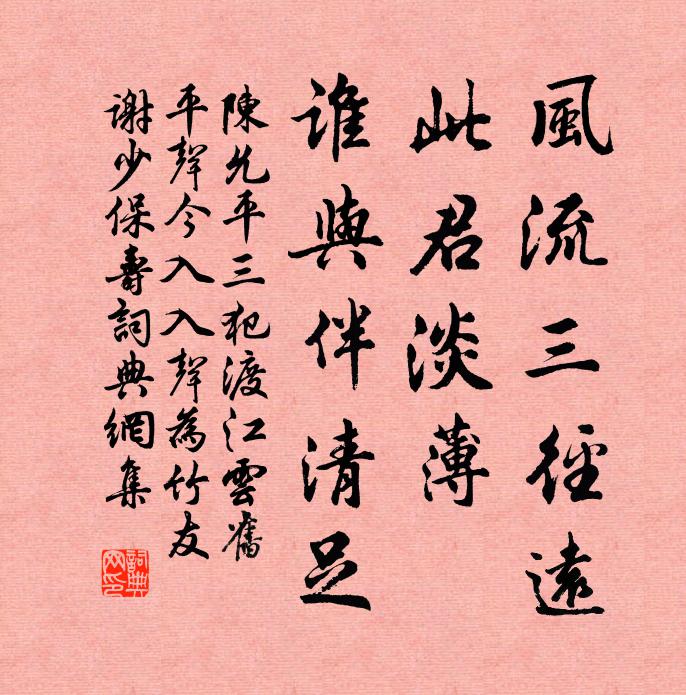 風流三徑遠
此君淡薄
誰與伴清足
陳允平三犯渡江雲舊
平聲今入入聲為竹友
謝少保壽詞典網集
詞典
网印